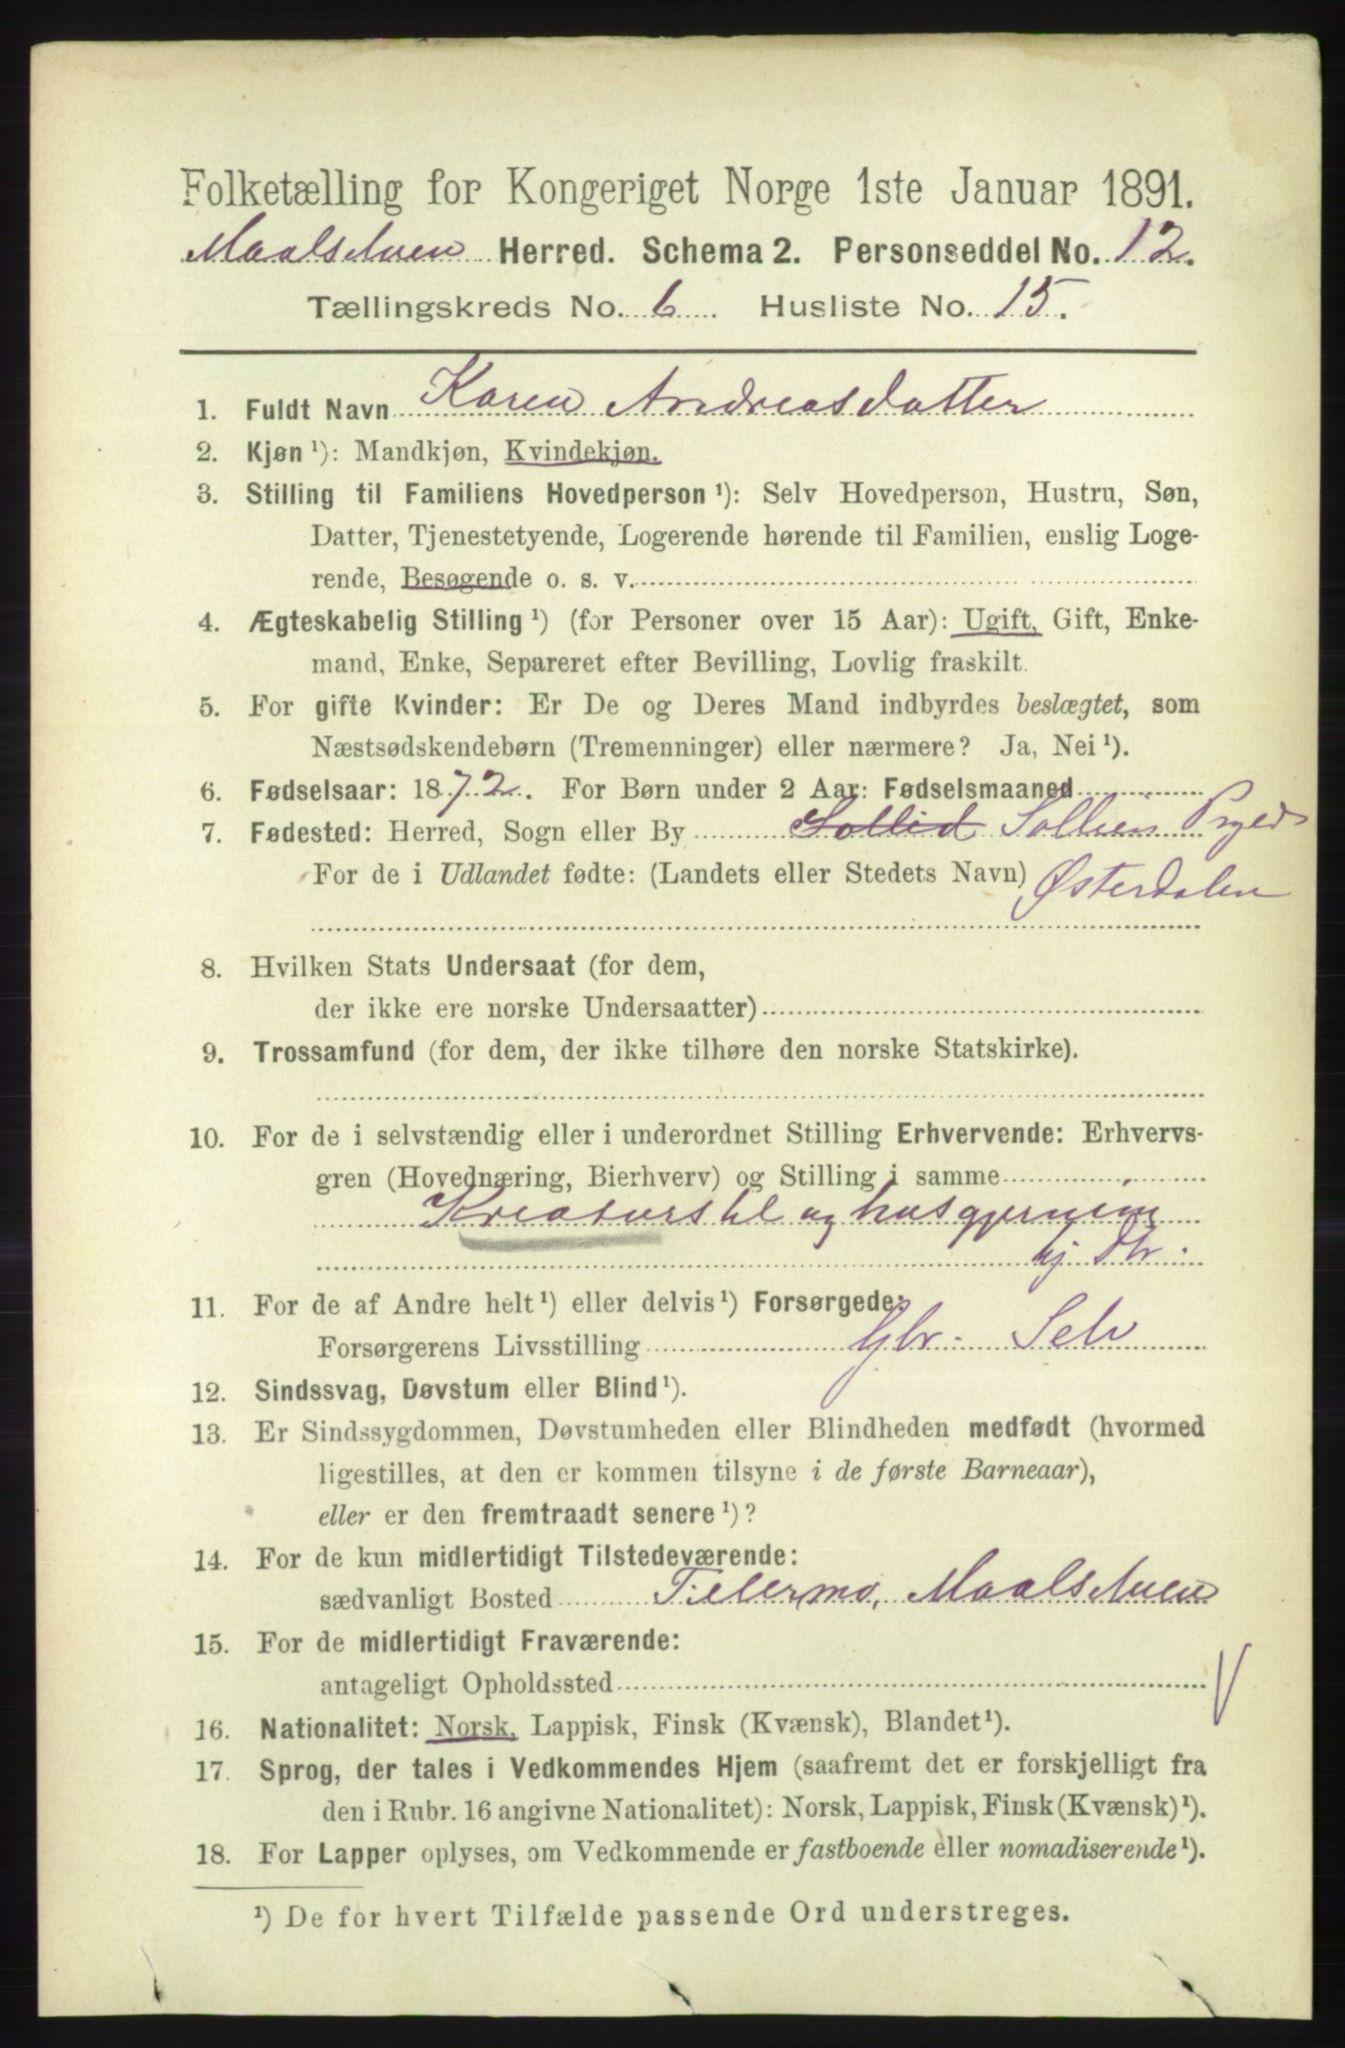 Folketælling for Kongeriget Norge 1ste Januar 1891.
Maalselven Herred. Schema 2. Personseddel No. 12.
Tællingskreds No. 6 Husliste No. 15.
1. Fuldt Navn Karen Andreasdatter
2. Kjøn ¹): Mandkjøn, Kvindekjøn.
3. Stilling til Familiens Hovedperson ¹): Selv Hovedperson, Hustru, Søn,
Datter, Tjenestetyende, Logerende hørende til Familien, enslig Loge-
rende, Besøgende o. s. v.
4. Ægteskabelig Stilling ¹) (for Personer over 15 Aar): Ugift, Gift, Enke-
mand, Enke, Separeret efter Bevilling, Lovlig fraskilt.
5. For gifte Kvinder: Er De og Deres Mand indbyrdes beslægtet, som
Næstsødskendebørn (Tremenninger) eller nærmere? Ja, Nei ¹).
6. Fødselsaar: 1872. For Børn under 2 Aar: Fødselsmaaned
7. Fødested: Herred, Sogn eller By Sollid Sollien Prgjeld
For de i Udlandet fødte: (Landets eller Stedets Navn) Østerdalen
8. Hvilken Stats Undersaat (for dem,
der ikke ere norske Undersaatter)
9. Trossamfund (for dem, der ikke tilhøre den norske Statskirke).
10. For de i selvstændig eller i underordnet Stilling Erhvervende: Erhvervs-
gren (Hovednæring, Bierhverv) og Stilling i samme
Kreaturstel og husgjerning
hj Gbr.
11. For de af Andre helt ¹) eller delvis ¹) Forsørgede:
Forsørgerens Livsstilling Gbr. Selv
12. Sindssvag, Døvstum eller Blind ¹).
13. Er Sindssygdommen, Døvstumheden eller Blindheden medfødt (hvormed
ligestilles, at den er kommen tilsyne i de første Barneaar),
eller er den fremtraadt senere ¹)?
14. For de kun midlertidigt Tilstedeværende:
sædvanligt Bosted Fellermo, Maalselven
15. For de midlertidigt Fraværende:
antageligt Opholdssted
16. Nationalitet: Norsk, Lappisk, Finsk (Kvænsk), Blandet ¹).
17. Sprog, der tales i Vedkommendes Hjem (saafremt det er forskjelligt fra
den i Rubr. 16 angivne Nationalitet): Norsk, Lappisk, Finsk (Kvænsk) ¹).
18. For Lapper oplyses, om Vedkommende er fastboende eller nomadiserende ¹).
¹) De for hvert Tilfælde passende Ord understreges.